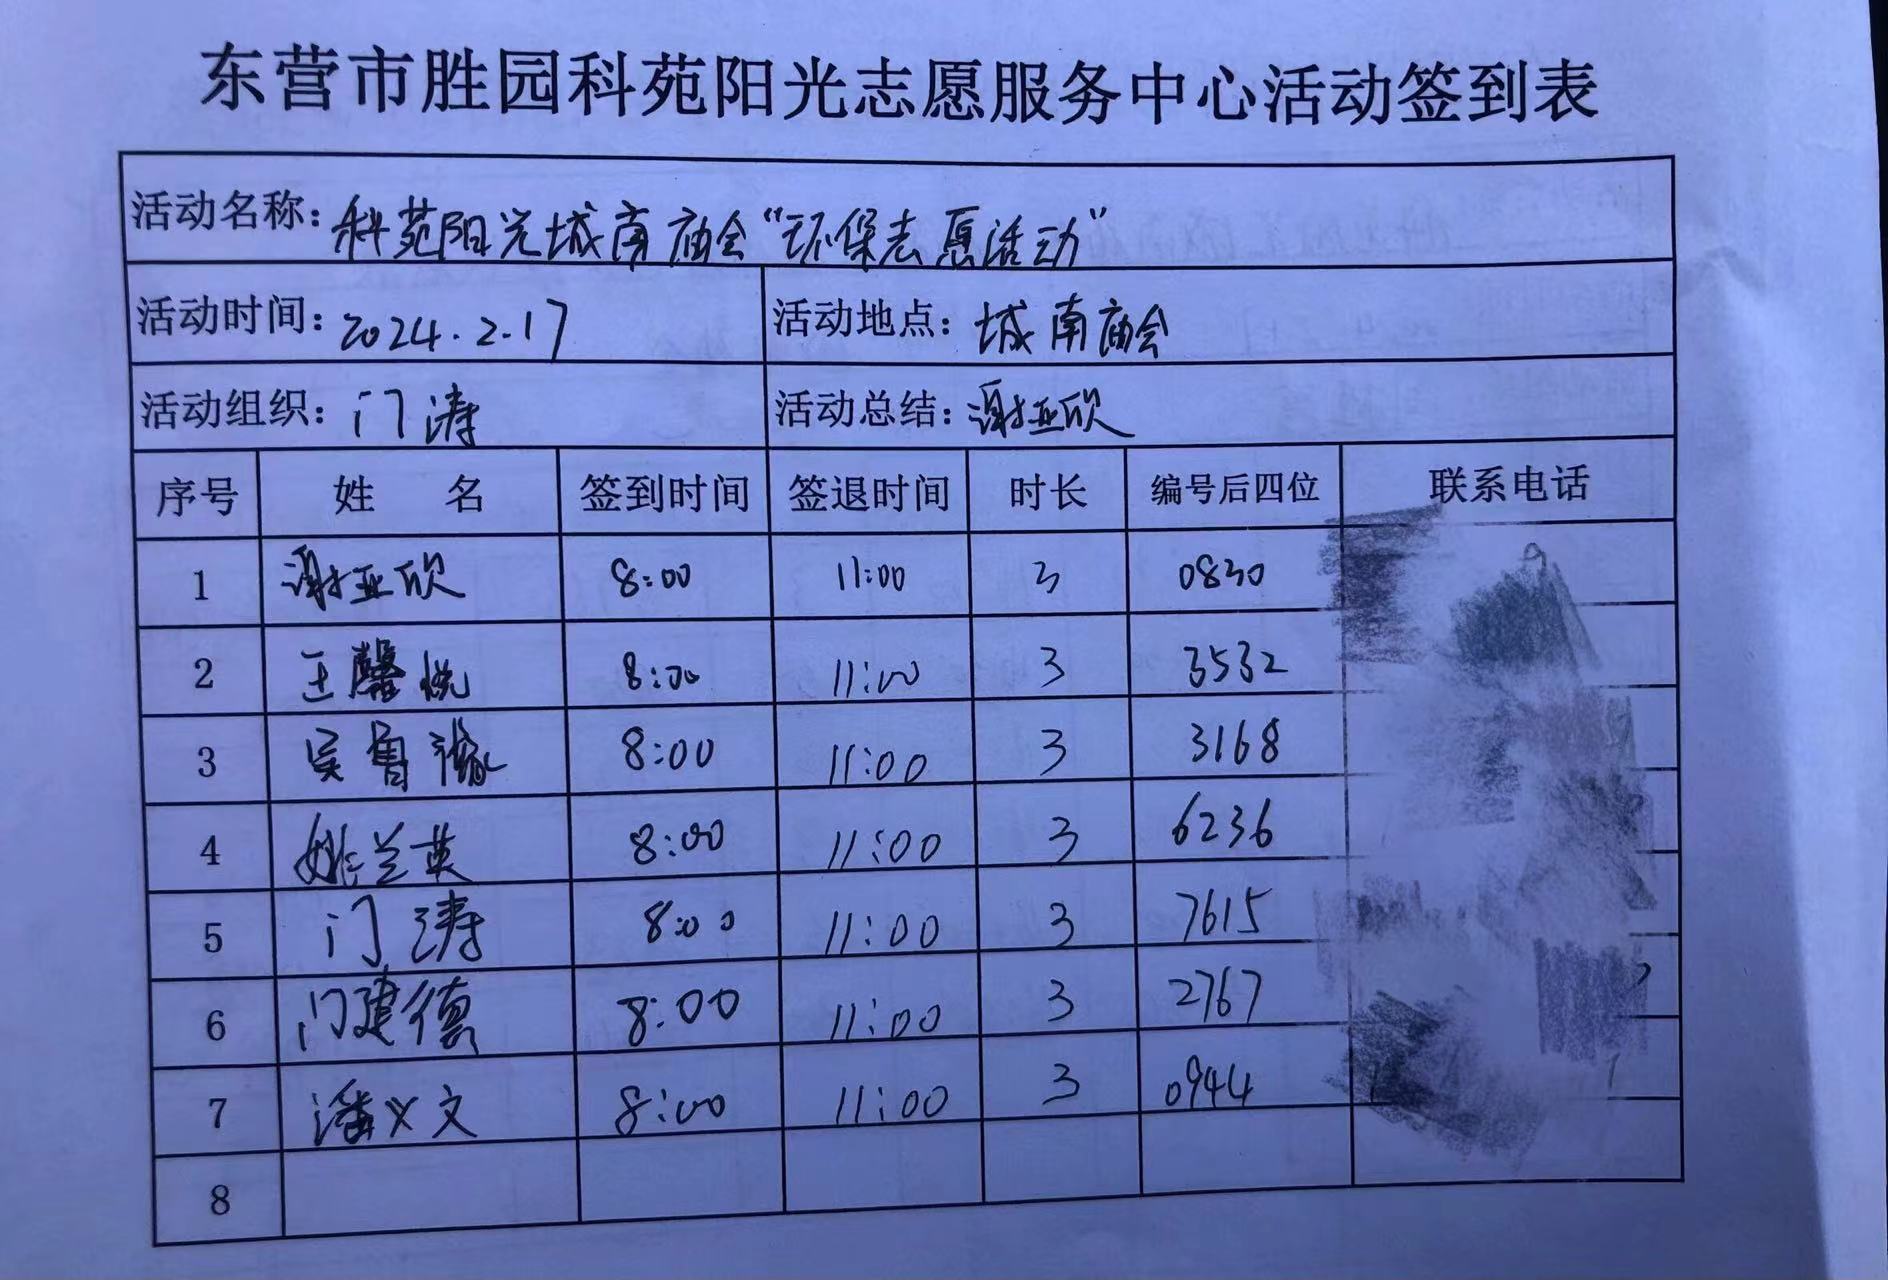 东营市胜园科苑阳光志愿服务中心活动签到表
活动名称：科苑阳光城南庙会“环保志愿活动”
活动时间：2024.2.17 活动地点：城南庙会
活动组织：门涛 活动总结：谢亚欣
序号 姓 名 签到时间 签退时间 时长 编号后四位 联系电话
1 谢亚欣 8:00 11:00 3 0830
2 王馨悦 8:00 11:00 3 3532
3 吴鲁 8:00 11:00 3 3168
4 姚兰英 8:00 11:00 3 6236
5 门涛 8:00 11:00 3 7615
6 门建德 8:00 11:00 3 2767
7 潘义文 8:00 11:00 3 0944
8